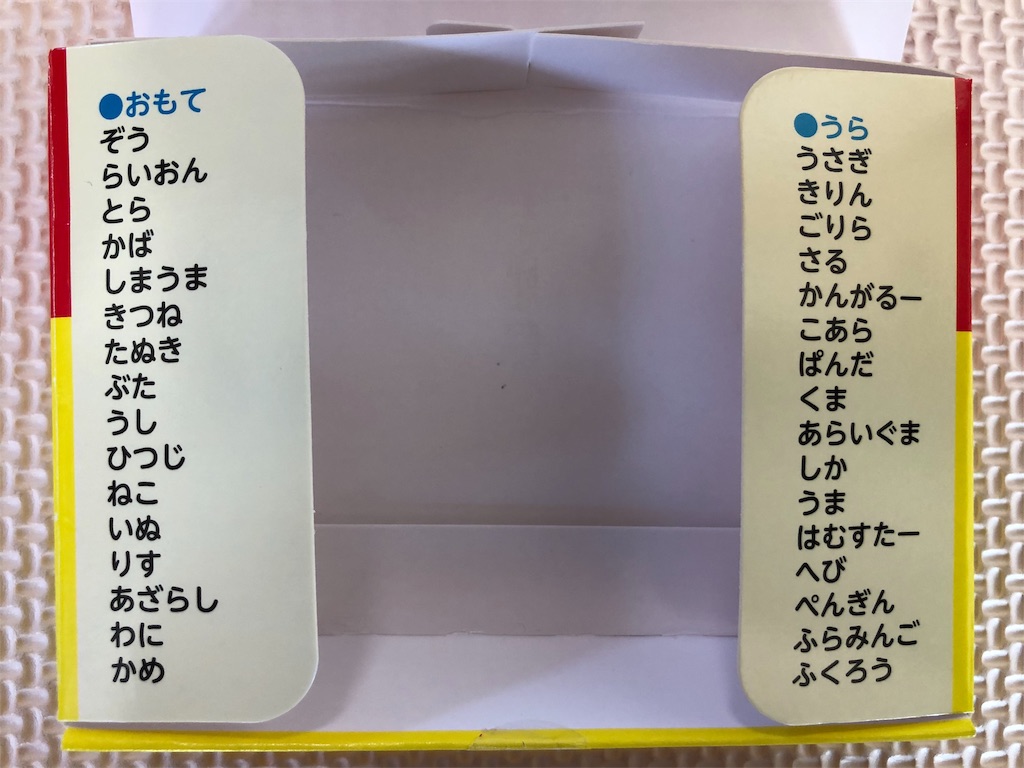 ●おもて
ぞう
らいおん
とら
かば
しまうま
きつね
たぬき
ぶた
うし
ひつじ
ねこ
いぬ
りす
あざらし
わに
かめ
●うら
うさぎ
きりん
ごりら
さる
かんがるー
こあら
ぱんだ
くま
あらいぐま
しか
うま
はむすたー
へび
ぺんぎん
ふらみんご
ふくろう